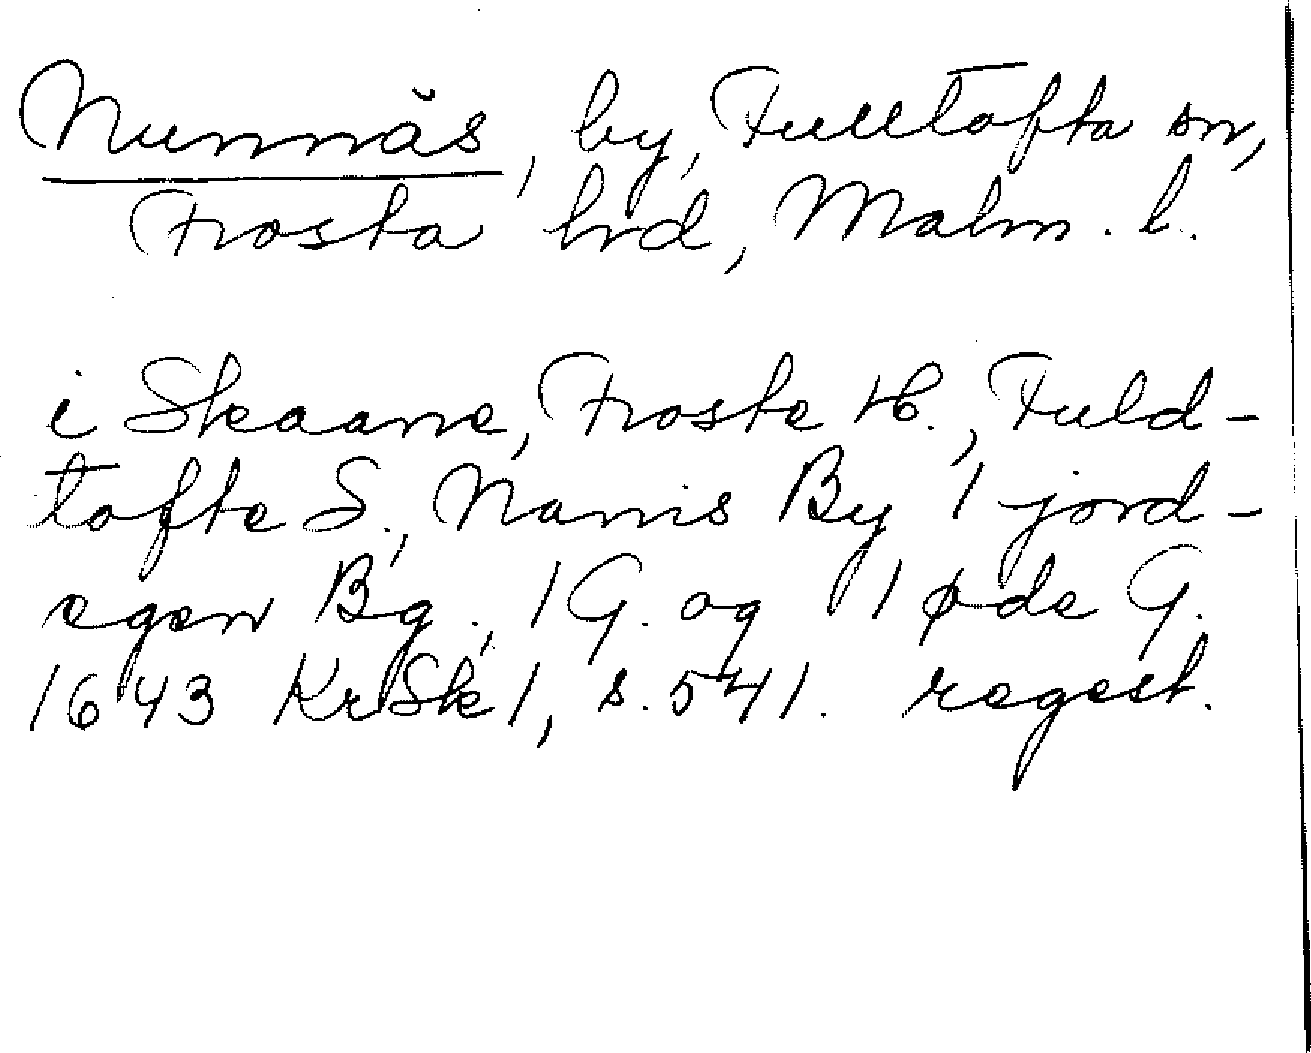 Nunnäs, by, Fulltofta sn,
Frosta hrd, Malm. l.
i Skaane, Froste H., Fuld-
tofte S., Nannis By 1 jord-
egen Bg., 1 G. og 1 øde G.
1643 KrSk 1, s. 541. regest.